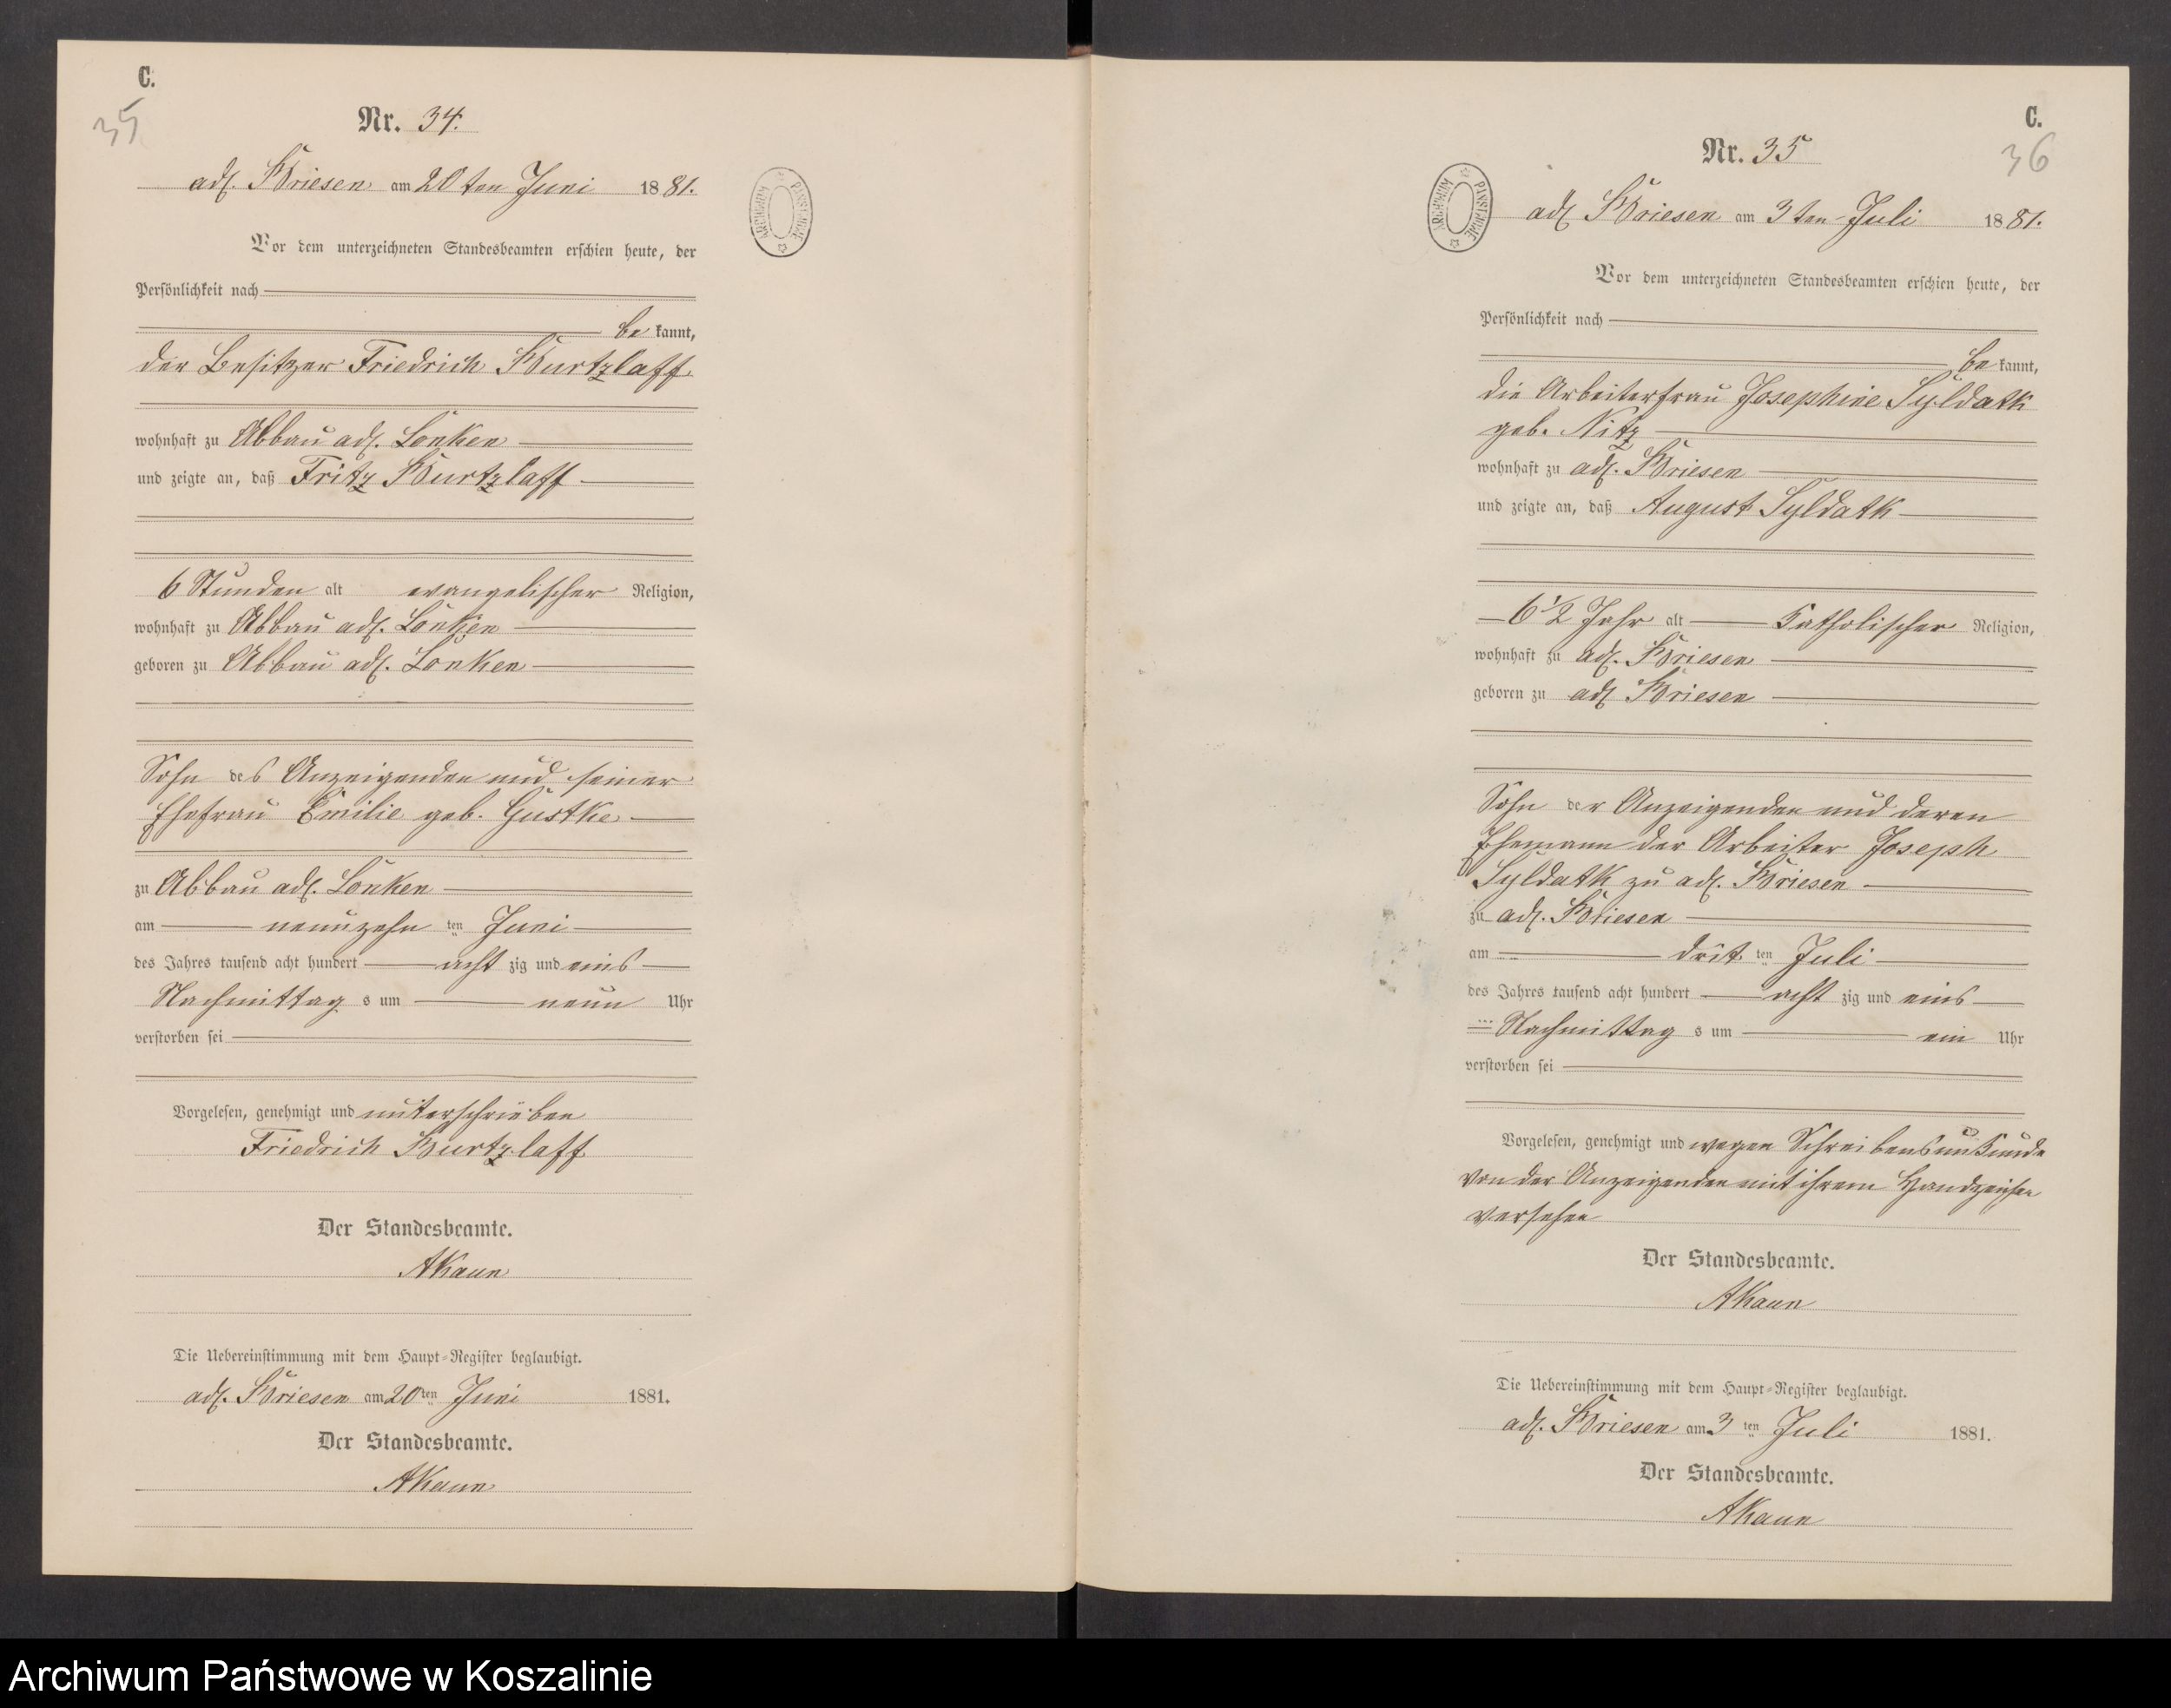 C.
35
Nr. 34.
adl. Briesen am 20ten Juni 1881.
Vor dem unterzeichneten Standesbeamten erschien heute, der
Persönlichkeit nach
be kannt,
der Besitzer Friedrich Wurtzlaff
wohnhaft zu Abbau adl. Lonken
und zeigte an, daß Fritz Wurtzlaff
6 Stunden alt evangelischer Religion,
wohnhaft zu Abbau adl. Lonken
geboren zu Abbau adl. Lonken
Sohn des Anzeigenden und seiner
Ehefrau Emilie geb. Gustke
zu Abbau adl. Lonken
am neunzehn ten Juni
des Jahres tausend acht hundert acht zig und eins
Nachmittag s um neun Uhr
verstorben sei
Vorgelesen, genehmigt und unterschrieben
Friedrich Wurtzlaff
Der Standesbeamte.
AKaun
Die Uebereinstimmung mit dem Haupt-Register beglaubigt.
adl. Briesen am 20ten Juni 1881.
Der Standesbeamte.
AKaun
ARCHIWUM PAŃSTWOWE
C.
36
Nr. 35
adl Briesen am 3ten Juli 1881.
Vor dem unterzeichneten Standesbeamten erschien heute, der
Persönlichkeit nach
be kannt,
die Arbeiterfrau Josephine Syldatk
geb. Nitz
wohnhaft zu adl. Briesen
und zeigte an, daß August Syldatk
6 1/2 Jahr alt Katholischer Religion,
wohnhaft zu adl. Briesen
geboren zu adl Briesen
Sohn der Anzeigenden und deren
Ehemann der Arbeiter Joseph
Syldatk zu adl. Briesen
zu adl. Briesen
am drit ten Juli
des Jahres tausend acht hundert acht zig und eins
Nachmittag s um ein Uhr
verstorben sei
Vorgelesen, genehmigt und wegen Schreibensunkunde
von der Anzeigenden mit ihrem Handzeichen
versehen
Der Standesbeamte.
AKaun
Die Uebereinstimmung mit dem Haupt-Register beglaubigt.
adl. Briesen am 3 ten Juli 1881.
Der Standesbeamte.
AKaun
ARCHIWUM PAŃSTWOWE
Archiwum Państwowe w Koszalinie